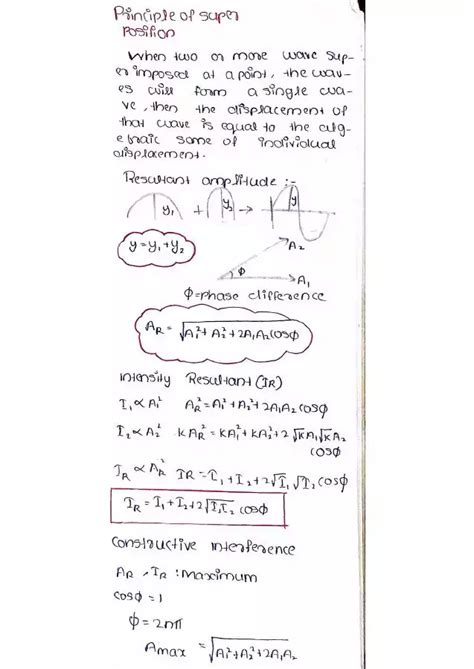 Principle of super
Position
When two or more wave sup-
erimposed at a point, the wav-
es will form a single wa-
ve, then the displacement of
that wave is equal to the alg-
ebraic some of individual
displacement.
Resultant amplitude :-
y₁ + y₂ → y
y = y₁ + y₂
A₂
ϕ
A₁
ϕ = phase difference
A_R = √A₁² + A₂² + 2A₁A₂ cosϕ
Intensity Resultant (I_R)
I₁ ∝ A₁² A_R² = A₁² + A₂² + 2A₁A₂ cosϕ
I₂ ∝ A₂² KA_R² = KA₁² + KA₂² + 2√K A₁ √K A₂
cosϕ
I_R ∝ A_R² I_R = I₁ + I₂ + 2√I₁ √I₂ cosϕ
I_R = I₁ + I₂ + 2√I₁I₂ cosϕ
Constructive interference
A_R, I_R : Maximum
cosϕ = 1
ϕ = 2nπ
Amax = √A₁² + A₂² + 2A₁A₂